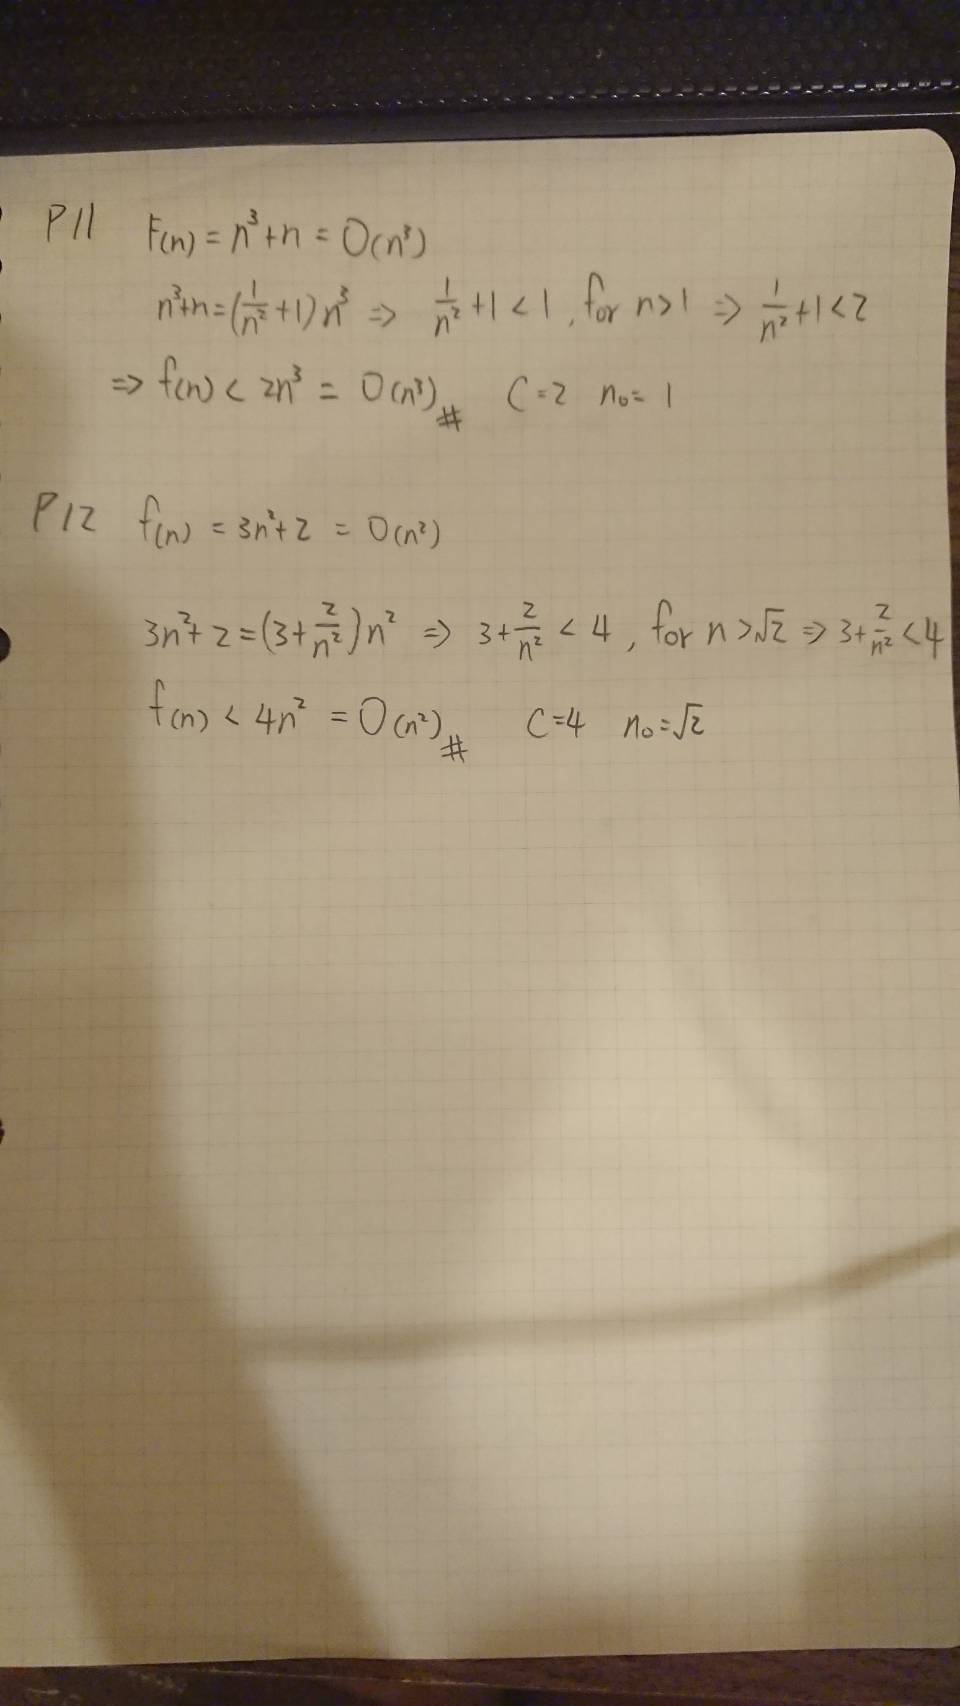 P11 F(n) = n³+n = O(n³)
n³+n=(1/n²+1)n³ => 1/n²+1<1, for n>1 => 1/n²+1<2
=> f(n) < 2n³ = O(n³)# C=2 n₀=1
P12 f(n) = 3n²+2 = O(n²)
3n²+2=(3+2/n²)n² => 3+2/n²<4, for n>√2 => 3+2/n²<4
f(n) < 4n² = O(n²)# C=4 n₀=√2